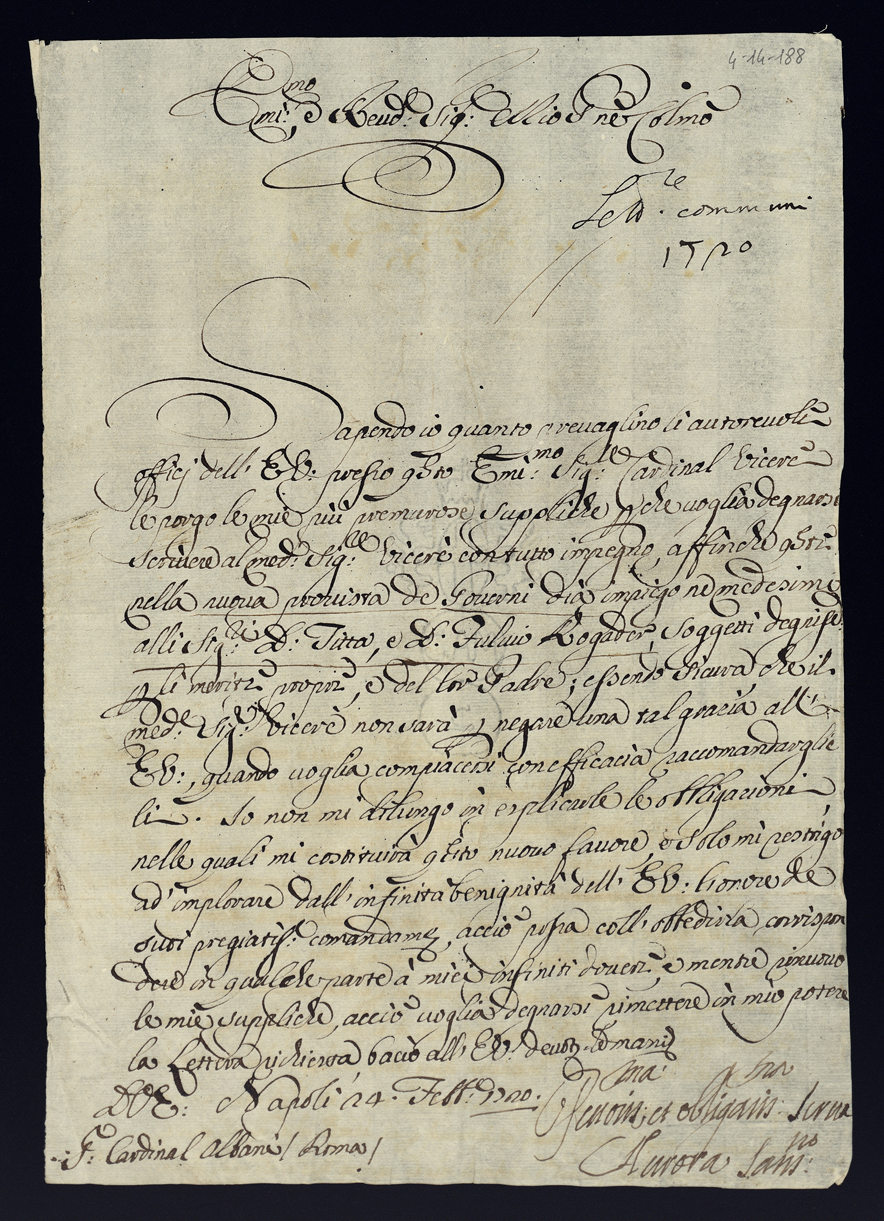 4-14-188
Emi:mo, e Reud: Sig: Mio Pne Colmo
Lett:re communi
1720
Sapendo io quanto prevaglino li autorevoli
officj dell' EV: presso qsto Emi:mo Sig:re Cardinal Vicerè
le porgo le mie più premurose suppliche, che voglia degnarsi
scrivere al med: Sig:re Vicerè con tutto impegno, affinche qsti
nella nuova provista de Governi dia impiego ne medesimi
alli Sig:ri D: Titta, e D: Fulvio Rogadeo, soggetti degnissi:
p li meriti proprj, e del lor Padre; essendo sicura che il
med: Sig: Vicerè non sarà p negare una tal gracia all'
EV:, quando voglia compiacersi con efficacia raccomandarglie
li. Io non mi dilungo in esplicarle le obbligacioni
nelle quali mi costituirà qsto nuovo favore, e solo mi restrigo
ad' implorare dall' infinita benignità dell' EV: l'onore de
suoi pregiatis: comandam:, acciò possa coll' obbedirla, corrispon
dere in qualche parte à miei infiniti doveri, e mentre rinuovo
le mie suppliche, acciò voglia degnarsi rimettere in mio potere
la Lettera richiesta, bacio all' EV: devot: le mani
D.V.E: Napoli 24. Febb: 1720.
Devotis:ma et obligatis:ma Serva
S: Cardinal Albani / Roma /
Aurora Sans:no